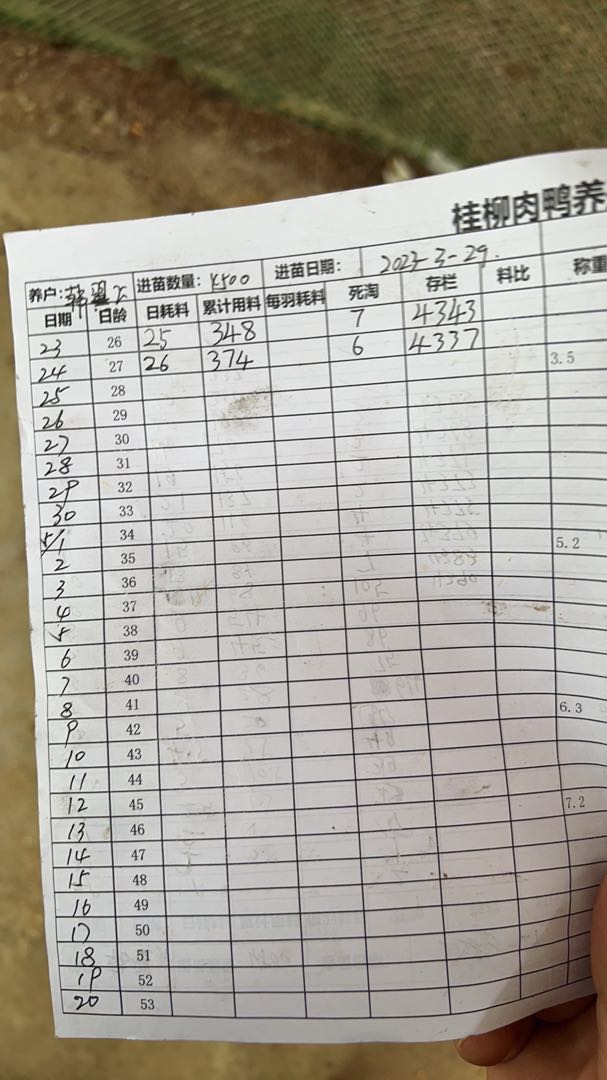 桂柳肉鸭养
养户: 进苗数量: 4500 进苗日期: 2023-3-29.
日期 日龄 日耗料 累计用料 每羽耗料 死淘 存栏 料比 称重
23 26 25 348 7 4343
24 27 26 374 6 4337 3.5
25 28
26 29
27 30
28 31
29 32
30 33
5/1 34 5.2
2 35
3 36
4 37
5 38
6 39
7 40
8 41 6.3
9 42
10 43
11 44
12 45 7.2
13 46
14 47
15 48
16 49
17 50
18 51
19 52
20 53